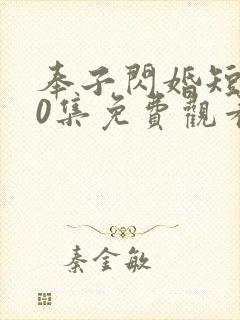 奉子閃婚短
0集免費觀看
秦金敏